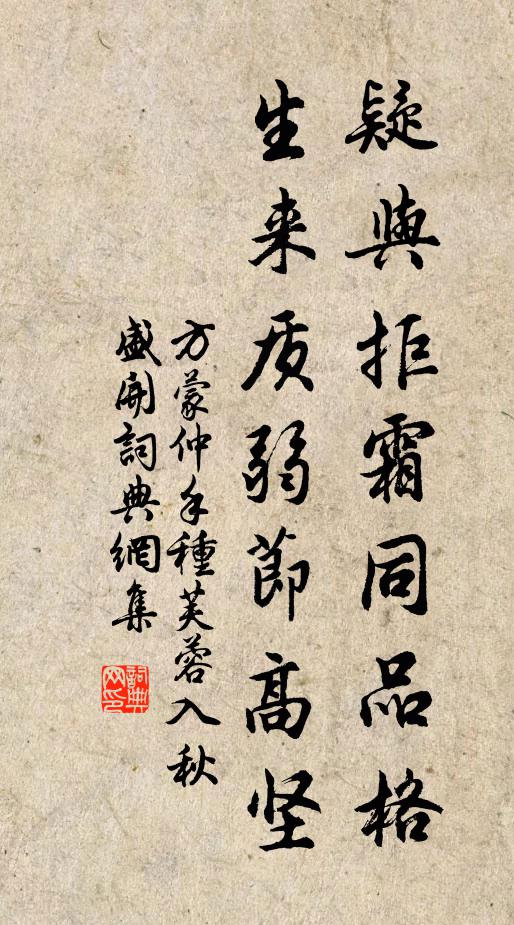 疑與拒霜同品格
生来质弱節高坚
方蒙仲手種芙蓉入秋
盛開詞典網集
詞典网印